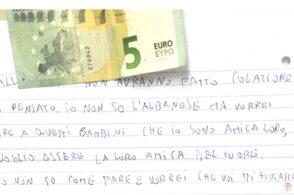 5 EURO
ΕΥΡΩ
NON AVRANNO FATTO COLAZIONE
PENSATO, IO NON SO L'ALBANESE MA VORREI
A QUESTI BAMBINI CHE IO SONO AMICA LORO,
VOGLIO ESSERE LA LORO AMICA DEL CUORE.
NON SO COME FARE E VORREI CHE VOI MI